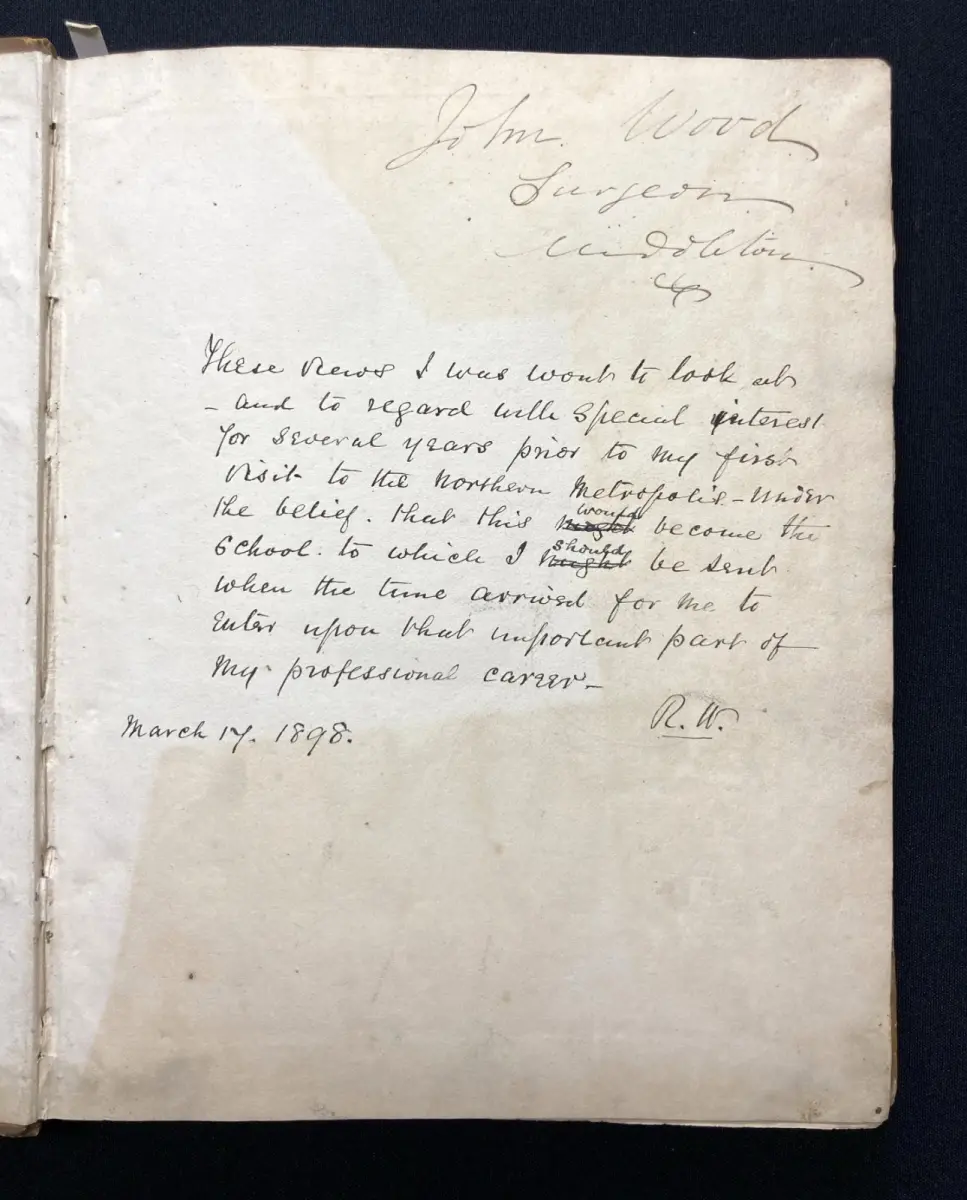 John. Wood.
Surgeon.
Middleton.
These views I was wont to look at
- and to regard with special interest
for several years prior to my first
visit to the Northern Metropolis - under
the belief. that this might would become the
School. to which I might should be sent
when the time arrived for me to
enter upon that important part of
my professional career -
R. W.
March 17. 1898.